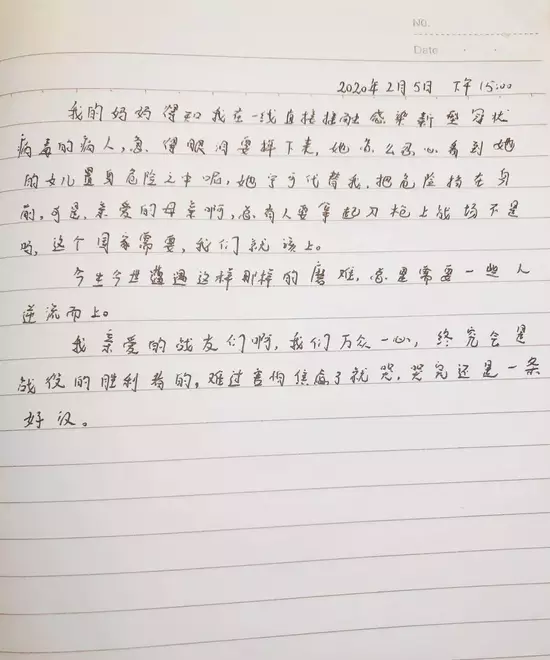 NO.
Date
2020年2月5日 下午15:00
我的妈妈得知我在一线直接接触感染新型冠状
病毒的病人,急得眼泪要掉下来,她怎么忍心看到她
的女儿置身危险之中呢,她宁可代替我,把危险挡在身
前,可是,亲爱的母亲啊,总有人要拿起刀枪上战场不是
吗,这个国家需要,我们就该上。
今生今世遭遇这样那样的磨难,总是需要一些人
逆流而上。
我亲爱的战友们啊,我们万众一心,终究会是
战役的胜利者的,难过害怕焦虑了就哭,哭完还是一条
好汉。